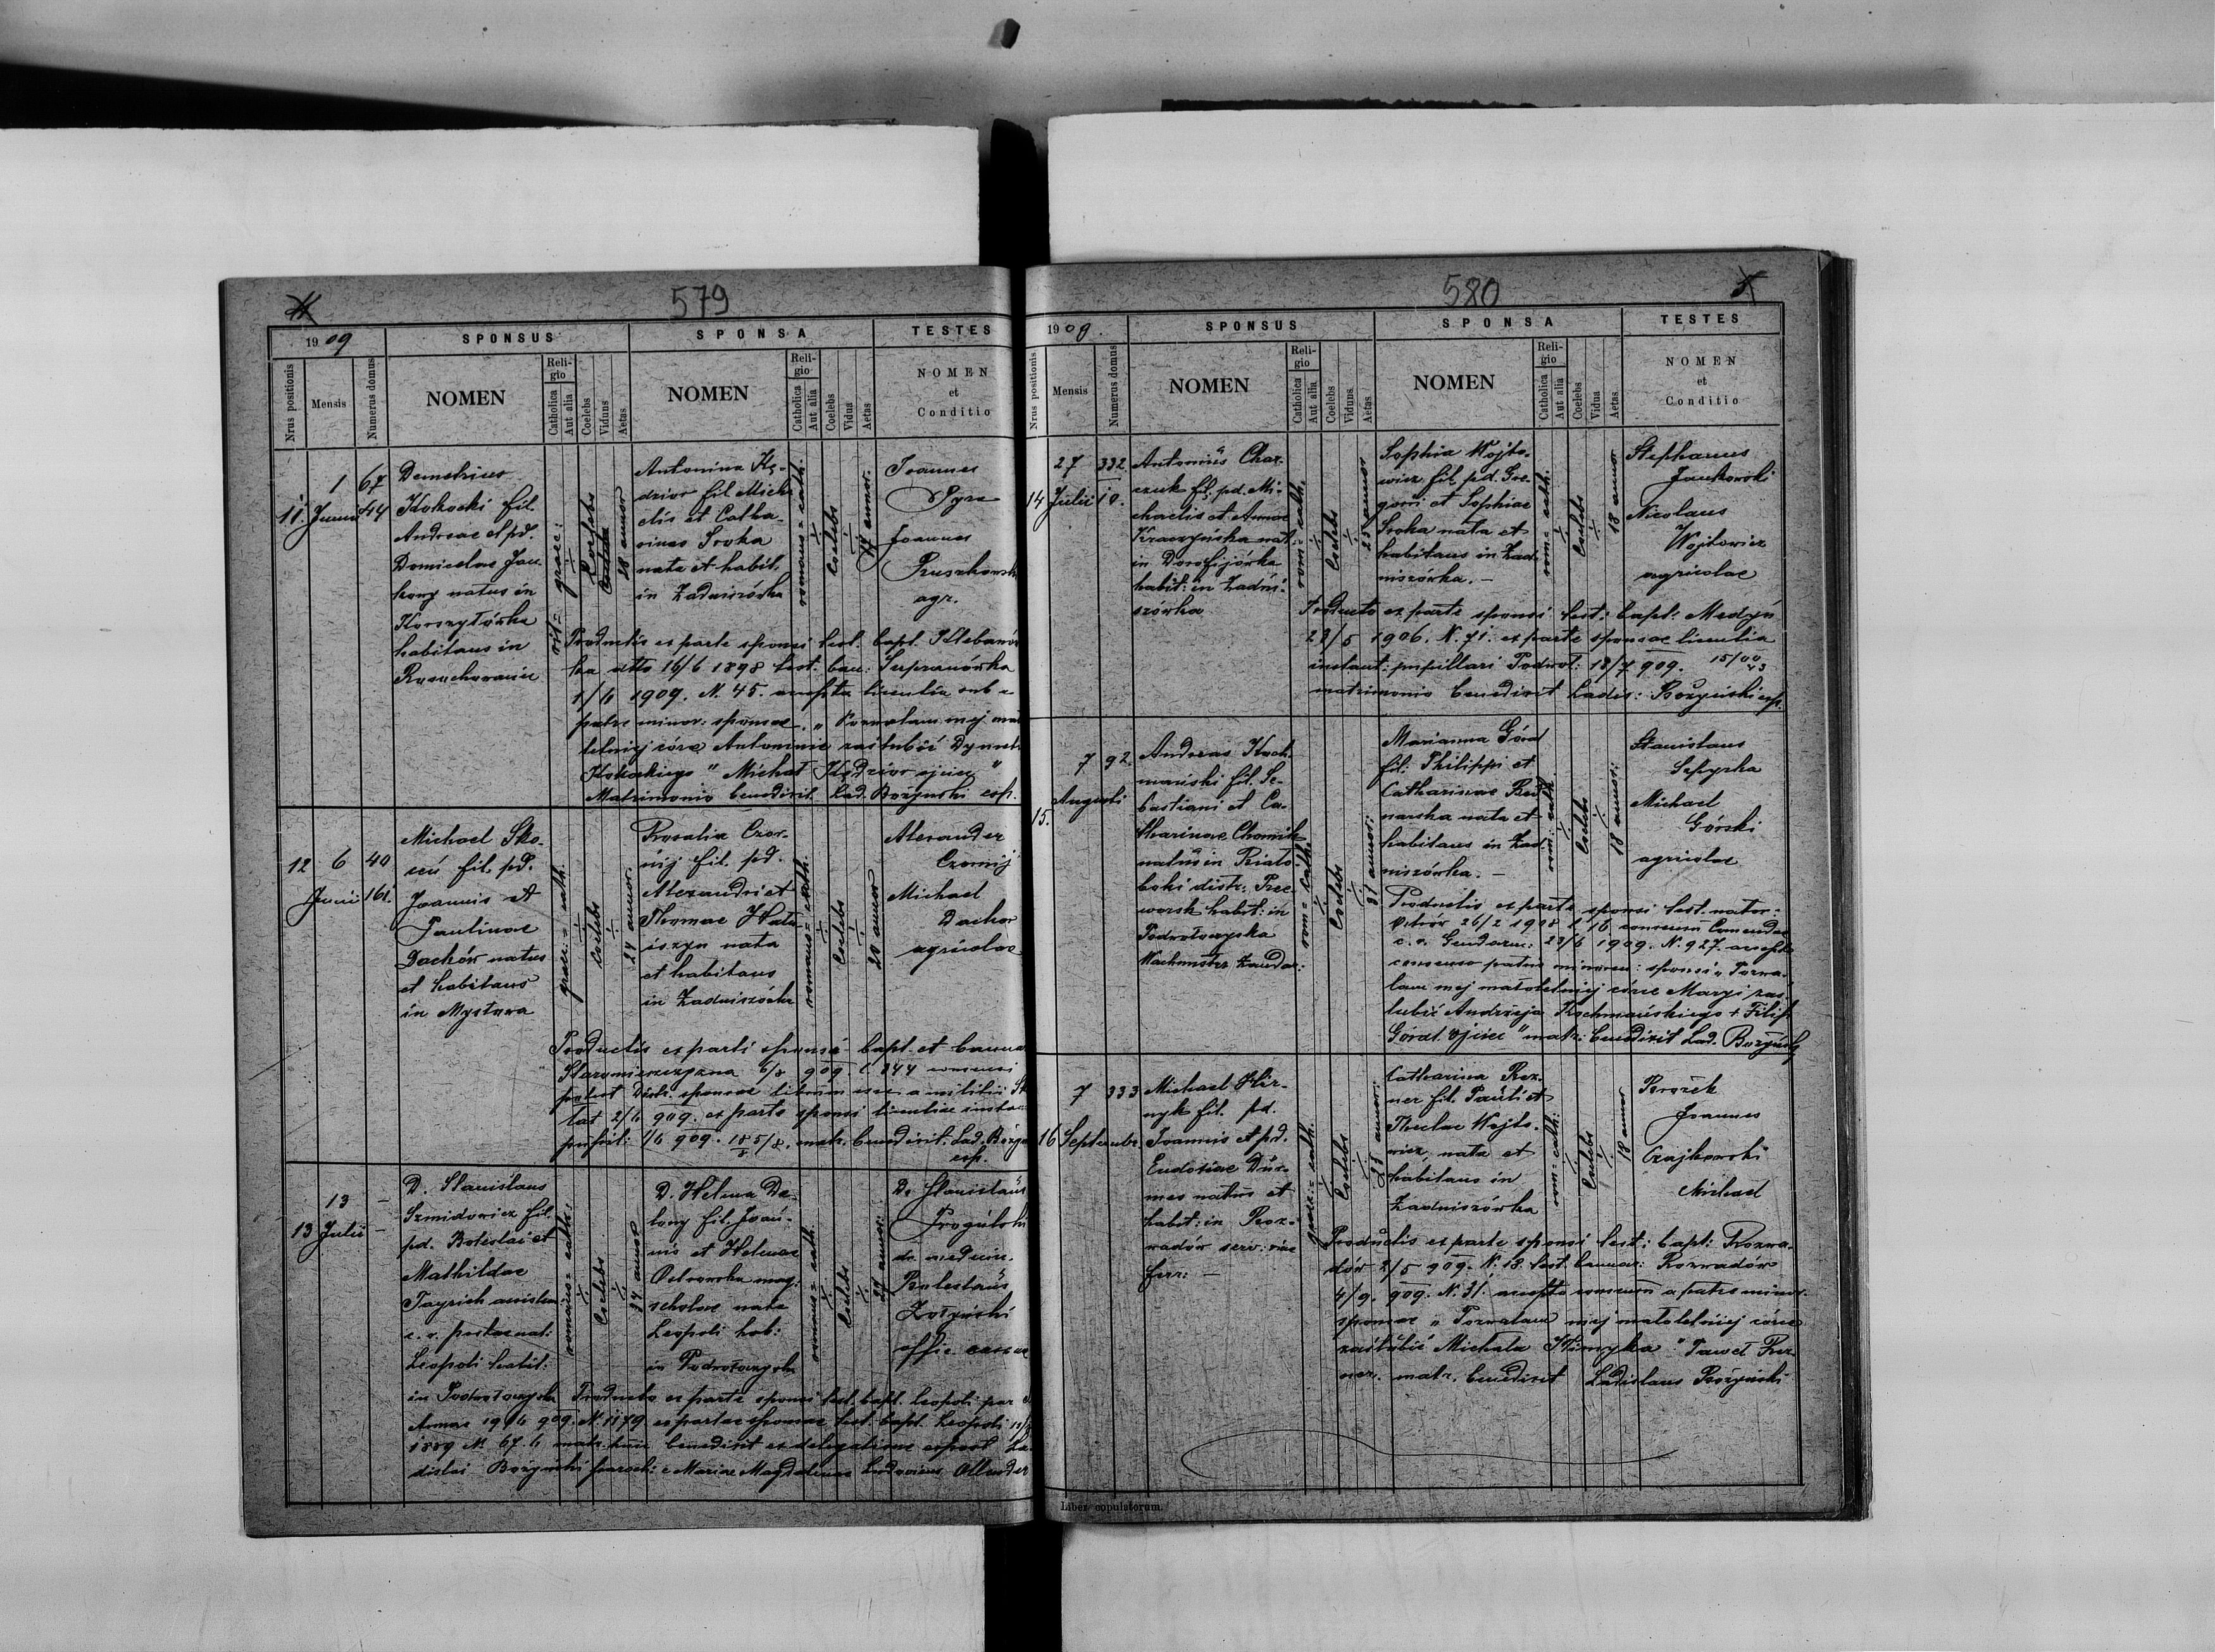 579
1909
SPONSUS
SPONSA
TESTES
Nrus positionis
Mensis
Numerus domus
NOMEN
Religio
Catholica
Aut alia
Coelebs
Viduus
Aetas
NOMEN
Religio
Catholica
Aut alia
Coelebs
Vidua
Aetas
NOMEN
et
Conditio
11.
1
Junii
67
44
Demetrius
Kokocki fil.
Andreae et pd.
habitans in
graec:
Coelebs
28 annor
Antonina Kę-
dzior fil. Micha
elis et Catha-
rinae Sroka
nata et habit.
in Zadniszówka
romano = cath.
Coelebs
Joannes
Pyra
Joannes
Pruszkowsk
agr.
Productis ex parte sponsi test. bapt. Klebanów
ka dtto 16/6 1898 test. ban: Suprunówka
1/6 1909. N. 45. accepta licentia sub
patre minor: sponsae. „Pozwalam mej ma
letniej córce Antoninie zaślubić Dymet
Kokockiego" Michał Kędzior ojciec"
Matrimonio benedixit Lad. Bożyński exp.
12
6
Junii
40
161
Michael Sko-
fil. pd.
Joannis et
Paulinae
Dachów natus
et habitans
in Mysłowa
graec. = cath.
Coelebs
24 annor.
Rosalia Czor-
nij fil. pd.
Alexandri et
nata
et habitans
in Zadniszówka
romano = cath.
Coelebs
20 annor
Alexander
Czornij
Michael
Dachow
agricolae
Productis ex parti sponsi bapt. et banna
2/6 909. ex parte sponsi licentiae
1/6 909. matr. benedixit Lad. Boży
exp.
13
13
Julii
D. Stanislaus
Szmidowicz fil.
pd. Boleslai et
Mathildae
c. r. postae nat:
Leopoli habit:
in Podwołoczyska
romano = cath:
Coelebs
34 annor
D. Helena De-
fil. Joan-
nis et Helenae
Ostrowska mag:
scholae nata
Leopoli hab:
in Podwołoczyska
romano = cath.
Coelebs
D. Stanislaus
Progulski
dr. medicin.
Boleslaus
offic.
Producto ex parte sponsi test. bapt. Leopoli par
Annae 909. N. 1179. ex parte sponsae test. bapt. Leopoli
1889 N. 67. matr. benedixit ex delegatione expost La
dislai Bożyński paroch: Mariae Magdalenae Ludovicus
580
1909.
SPONSUS
SPONSA
TESTES
Nrus positionis
Mensis
Numerus domus
NOMEN
Religio
Catholica
Aut alia
Coelebs
Viduus.
Aetas.
NOMEN
Religio
Catholica
Aut alia
Coelebs
Vidua
Aetas.
NOMEN
et
Conditio
14
27
Julii
332
10.
Antonius Char-
czuk fil. pd. Mi-
chaelis et Annae
Kraczyńska nat
in Dorofijówka
habit: in Zadni-
szówka
rom: = cath.
Coelebs
25 annor
Sophia Wojto-
wicz fil. pd. Gre-
gorii et Sophiae
Sroka nata et
habitans in Zad
niszówka. —
rom: = cath.
Coelebs
18 annor
Stephanus
Jankowski
Nicolaus
Wojtowicz
agricolae
Producto ex parte sponsi test: bapt: Medyń
23/5 1906. N. 71. ex parte sponsae licentia
instant: pupillari Podwoł: 18/7 909.
matrimonio benedixit Ladis: Bożyński exp.
15.
7
Augusti
92.
Andreas Koch-
mański fil. Se-
bastiani et Ca-
tharinae Chomik
natus in Biało
boki distr: Prze-
worsk habit: in
Podwołoczyska
Wachmister żandar:
rom: = cath.
Coelebs
31 annor:
Marianna Góral
fil: Philippi et
Catharinae Bed
narska nata et
habitans in Zad
niszówka. —
rom: cath
Coelebs
18 annor:
Stanislaus
Michael
Górski
agricolae
Productis ex parte sponsi test. nator:
26/2 1908 l. 16 consensu Comendae
c. r. Gendarm: 23/6 1909. N. 927. accepto
consensu patris minoren: sponsi „Pozwa-
lam mej małoletniej córce Maryi zaś-
lubić Andrzeja Kochmańskiego + Filip
Góral ojciec" matr: benedixit Lad. Bożyński
16
7
Septembr.
333
Michael Klim-
nyk fil. pd.
Joannis et pd.
Eudoxiae
natus et
habit: in Roz-
wadów serv: viae
ferr: —
graec: = cath.
Coelebs
28 annor:
Catharina Rez-
ner fil. Pauli et
Theclae Wojto-
wicz, nata et
habitans in
Zadniszówka
rom: = cath:
Coelebs
18 annor
Brożek
Joannes
Czajkowski
Michael
Productis ex parte sponsi test: bapt: Rozwa-
dów 2/5 909. N. 18. test. bannor: Rozwadów
4/9. 909. N. 31. accepto consensu a patre minor.
sponsae „Pozwalam mej małoletniej córce
zaślubić Michała Klimyka" Paweł Rez-
ner. matr. benedixit Ladislaus Bożyński
Liber copulatorum.